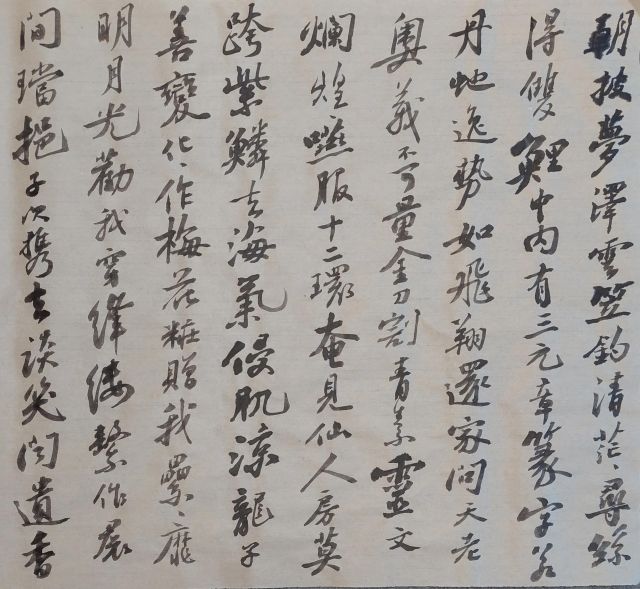 朝披夢澤雲笠釣清茫々尋絲
得雙鯉中内有三元章篆字若
丹虵逸勢如飛翔還家問天老
奧義不可量金刀割青素靈文
爛煌々嚥服十二環奄見仙人房莫
跨紫鱗去海氣侵肌涼龍子
善變化々作梅花粧贈我纍々靡
明月光勸我穿絳縷繫作裙
間璫挹子以携去談笑聞遺香